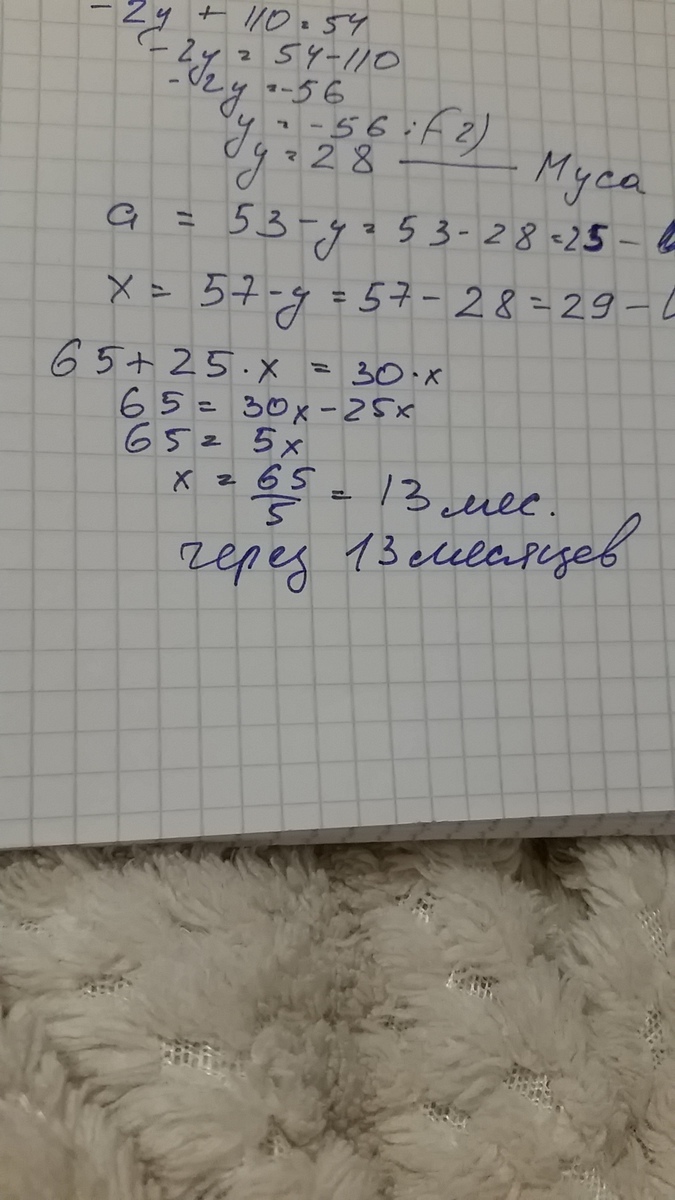 -2y + 110 = 54
-2y = 54-110
-2y = -56
y = -56 :(-2)
y = 28 — Муса
a = 53-y = 53-28 = 25 -
x = 57-y = 57-28 = 29 -
65+25·x = 30·x
65 = 30x-25x
65 = 5x
x = 65/5 = 13 мес.
через 13 месяцев